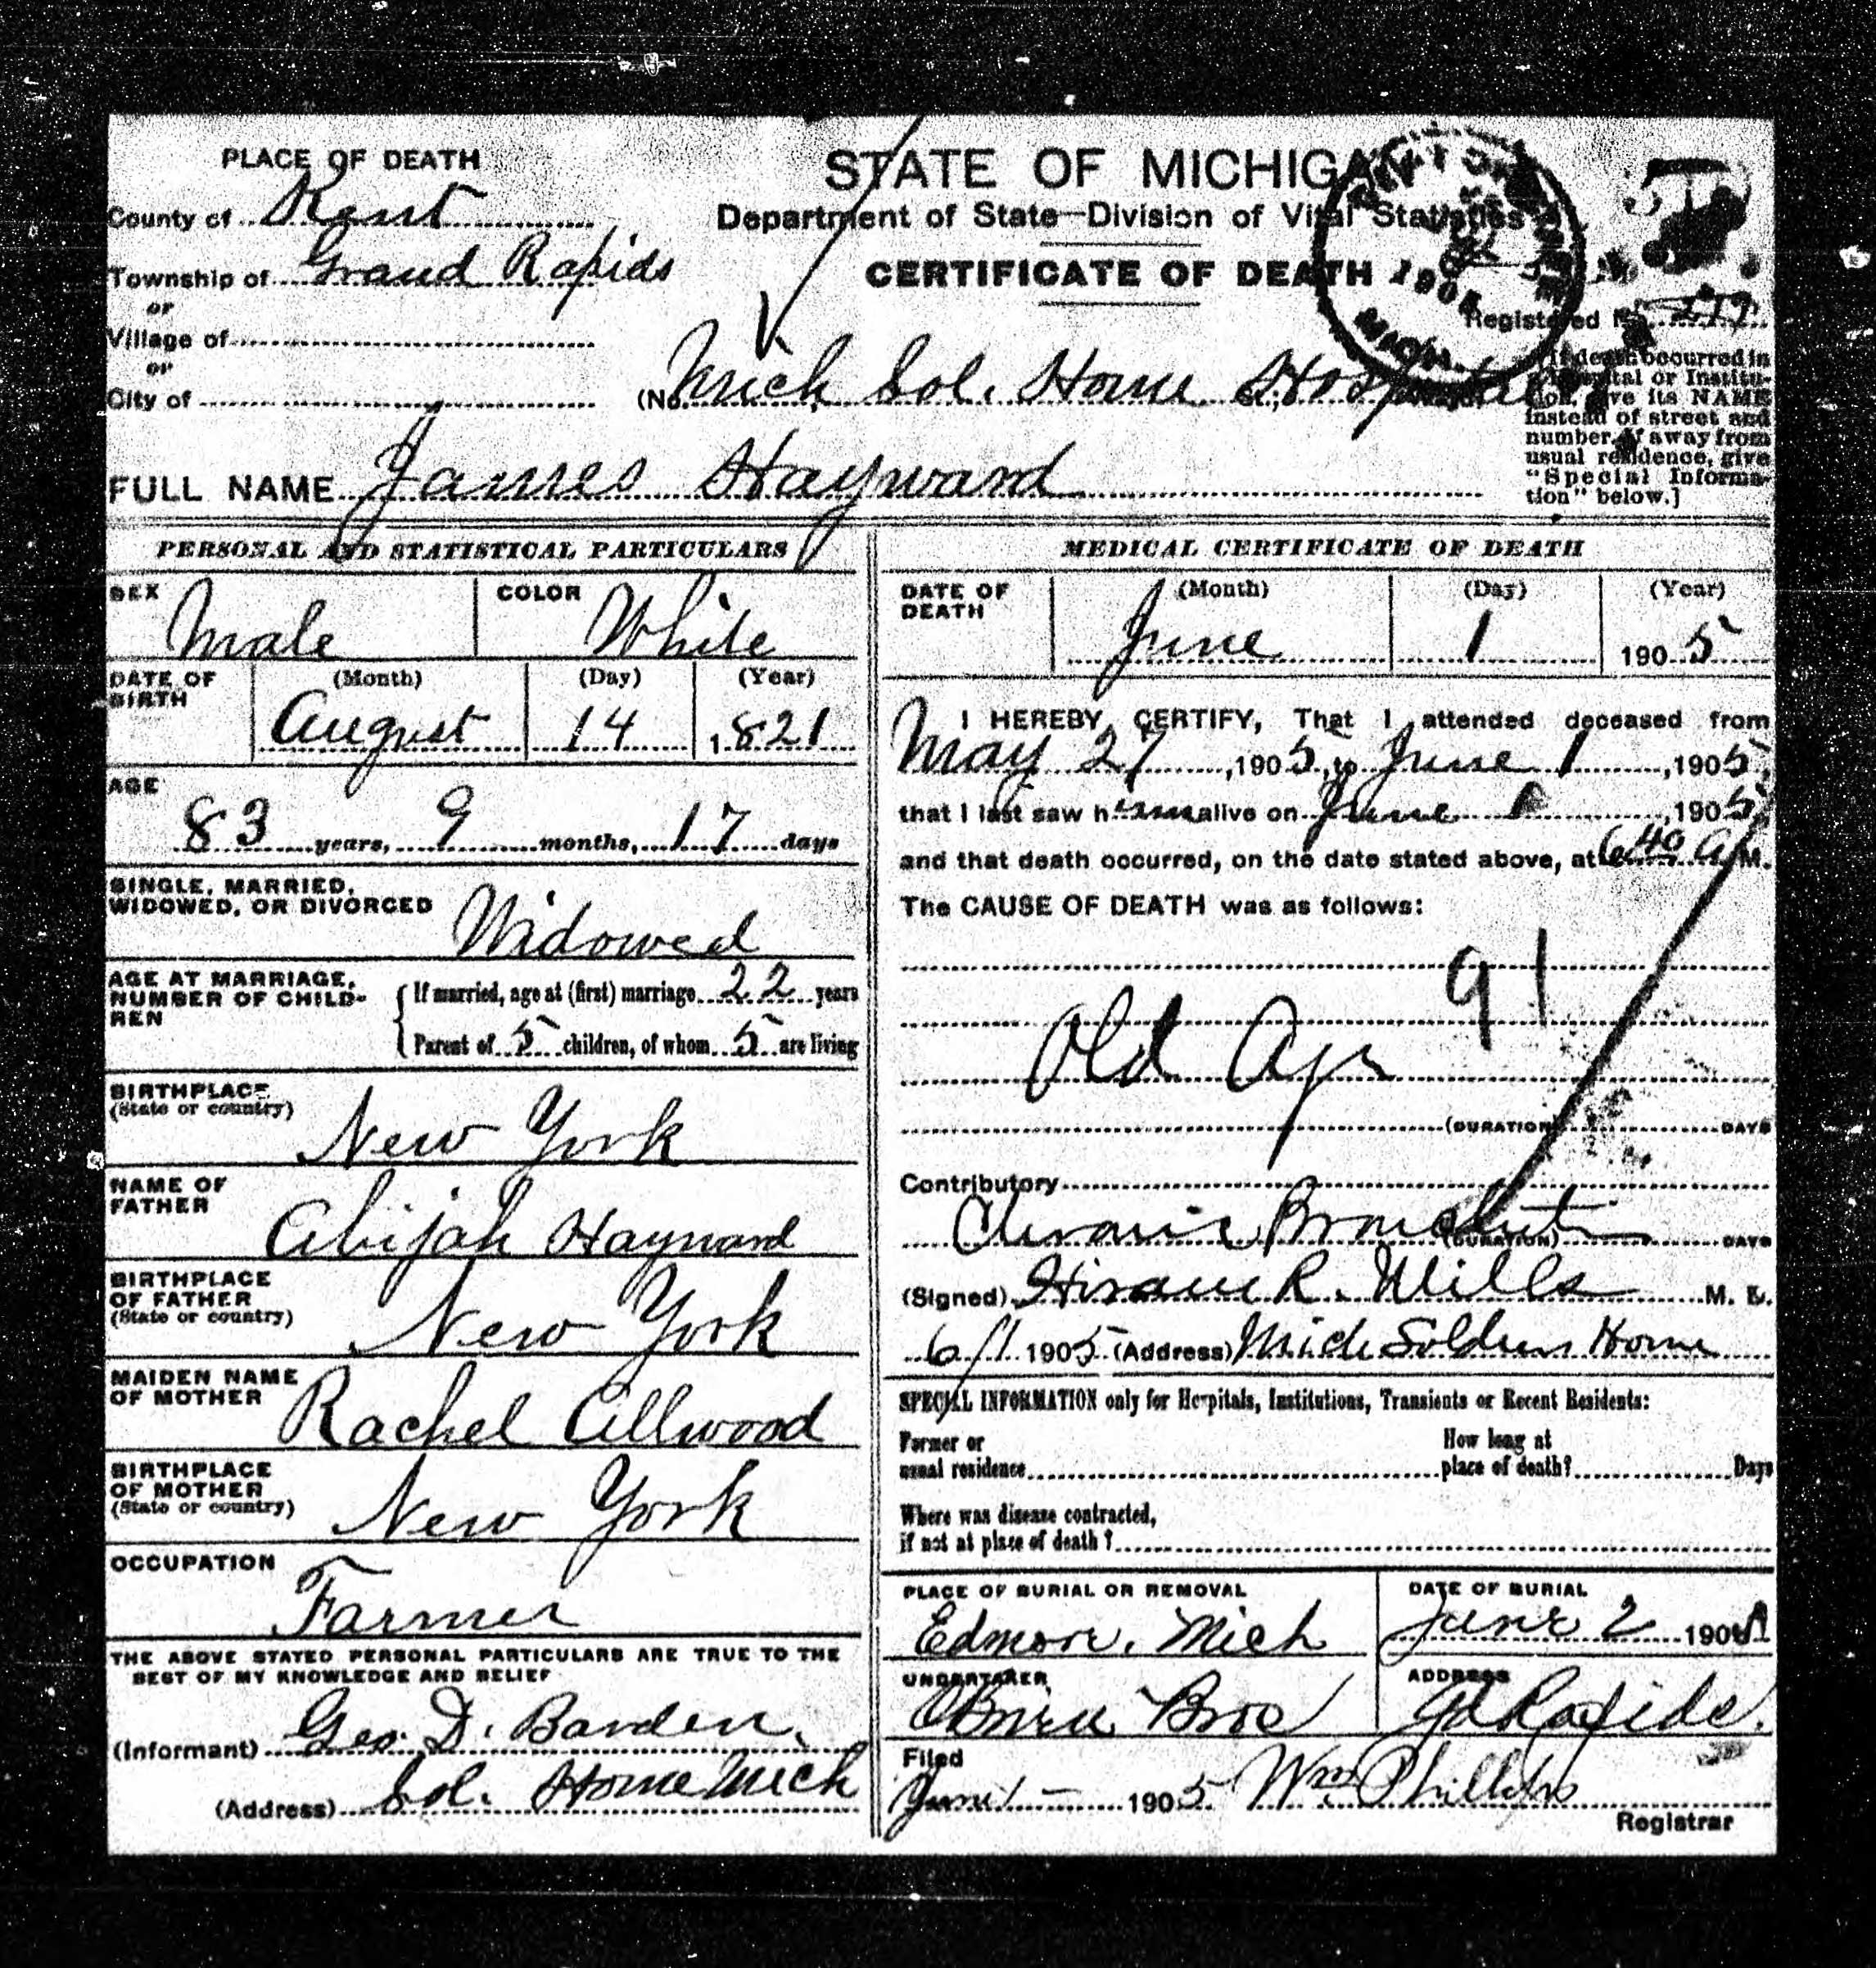 PLACE OF DEATH
County of Kent
Township of Grand Rapids
or
Village of
or
City of
STATE OF MICHIGA
Department of State—Division of Vital Statistics
CERTIFICATE OF DEATH
1905
MICH.
Registered No.
(No. Mich Sol. Home Hospital
[If death occurred in
Hospital or Institu-
tion, give its NAME
instead of street and
number. If away from
usual residence, give
"Special Informa-
tion" below.]
FULL NAME James Hayward
PERSONAL AND STATISTICAL PARTICULARS
SEX Male COLOR White
DATE OF BIRTH (Month) August (Day) 14 (Year) 1821
AGE
83 years, 9 months, 17 days
SINGLE, MARRIED,
WIDOWED, OR DIVORCED Widowed
AGE AT MARRIAGE,
NUMBER OF CHILD-
REN
If married, age at (first) marriage 22 years
Parent of 5 children, of whom 5 are living
BIRTHPLACE
(State or country) New York
NAME OF
FATHER Abijah Hayward
BIRTHPLACE
OF FATHER
(State or country) New York
MAIDEN NAME
OF MOTHER Rachel Allwood
BIRTHPLACE
OF MOTHER
(State or country) New York
OCCUPATION
Farmer
THE ABOVE STATED PERSONAL PARTICULARS ARE TRUE TO THE
BEST OF MY KNOWLEDGE AND BELIEF
(Informant) Geo. D. Barden
(Address) Sol. Home Mich
MEDICAL CERTIFICATE OF DEATH
DATE OF DEATH (Month) June (Day) 1 (Year) 1905
I HEREBY CERTIFY, That I attended deceased from
May 27, 1905, to June 1, 1905,
that I last saw him alive on June 1, 1905,
and that death occurred, on the date stated above, at 6 40 A M.
The CAUSE OF DEATH was as follows:
91
Old Age
(DURATION) DAYS
Contributory
Chronic Bronchitis
(DURATION) DAYS
(Signed) Hiram R. Mills M. D.
6/1 1905 (Address) Mich Soldiers Home
SPECIAL INFORMATION only for Hospitals, Institutions, Transients or Recent Residents:
Former or
usual residence
How long at
place of death? Days
Where was disease contracted,
if not at place of death?
PLACE OF BURIAL OR REMOVAL
Edmore, Mich
DATE OF BURIAL
June 2 190
UNDERTAKER
OBrien Bros
ADDRESS
Gd Rapids.
Filed
June 1 — 1905 Wm Phillips
Registrar